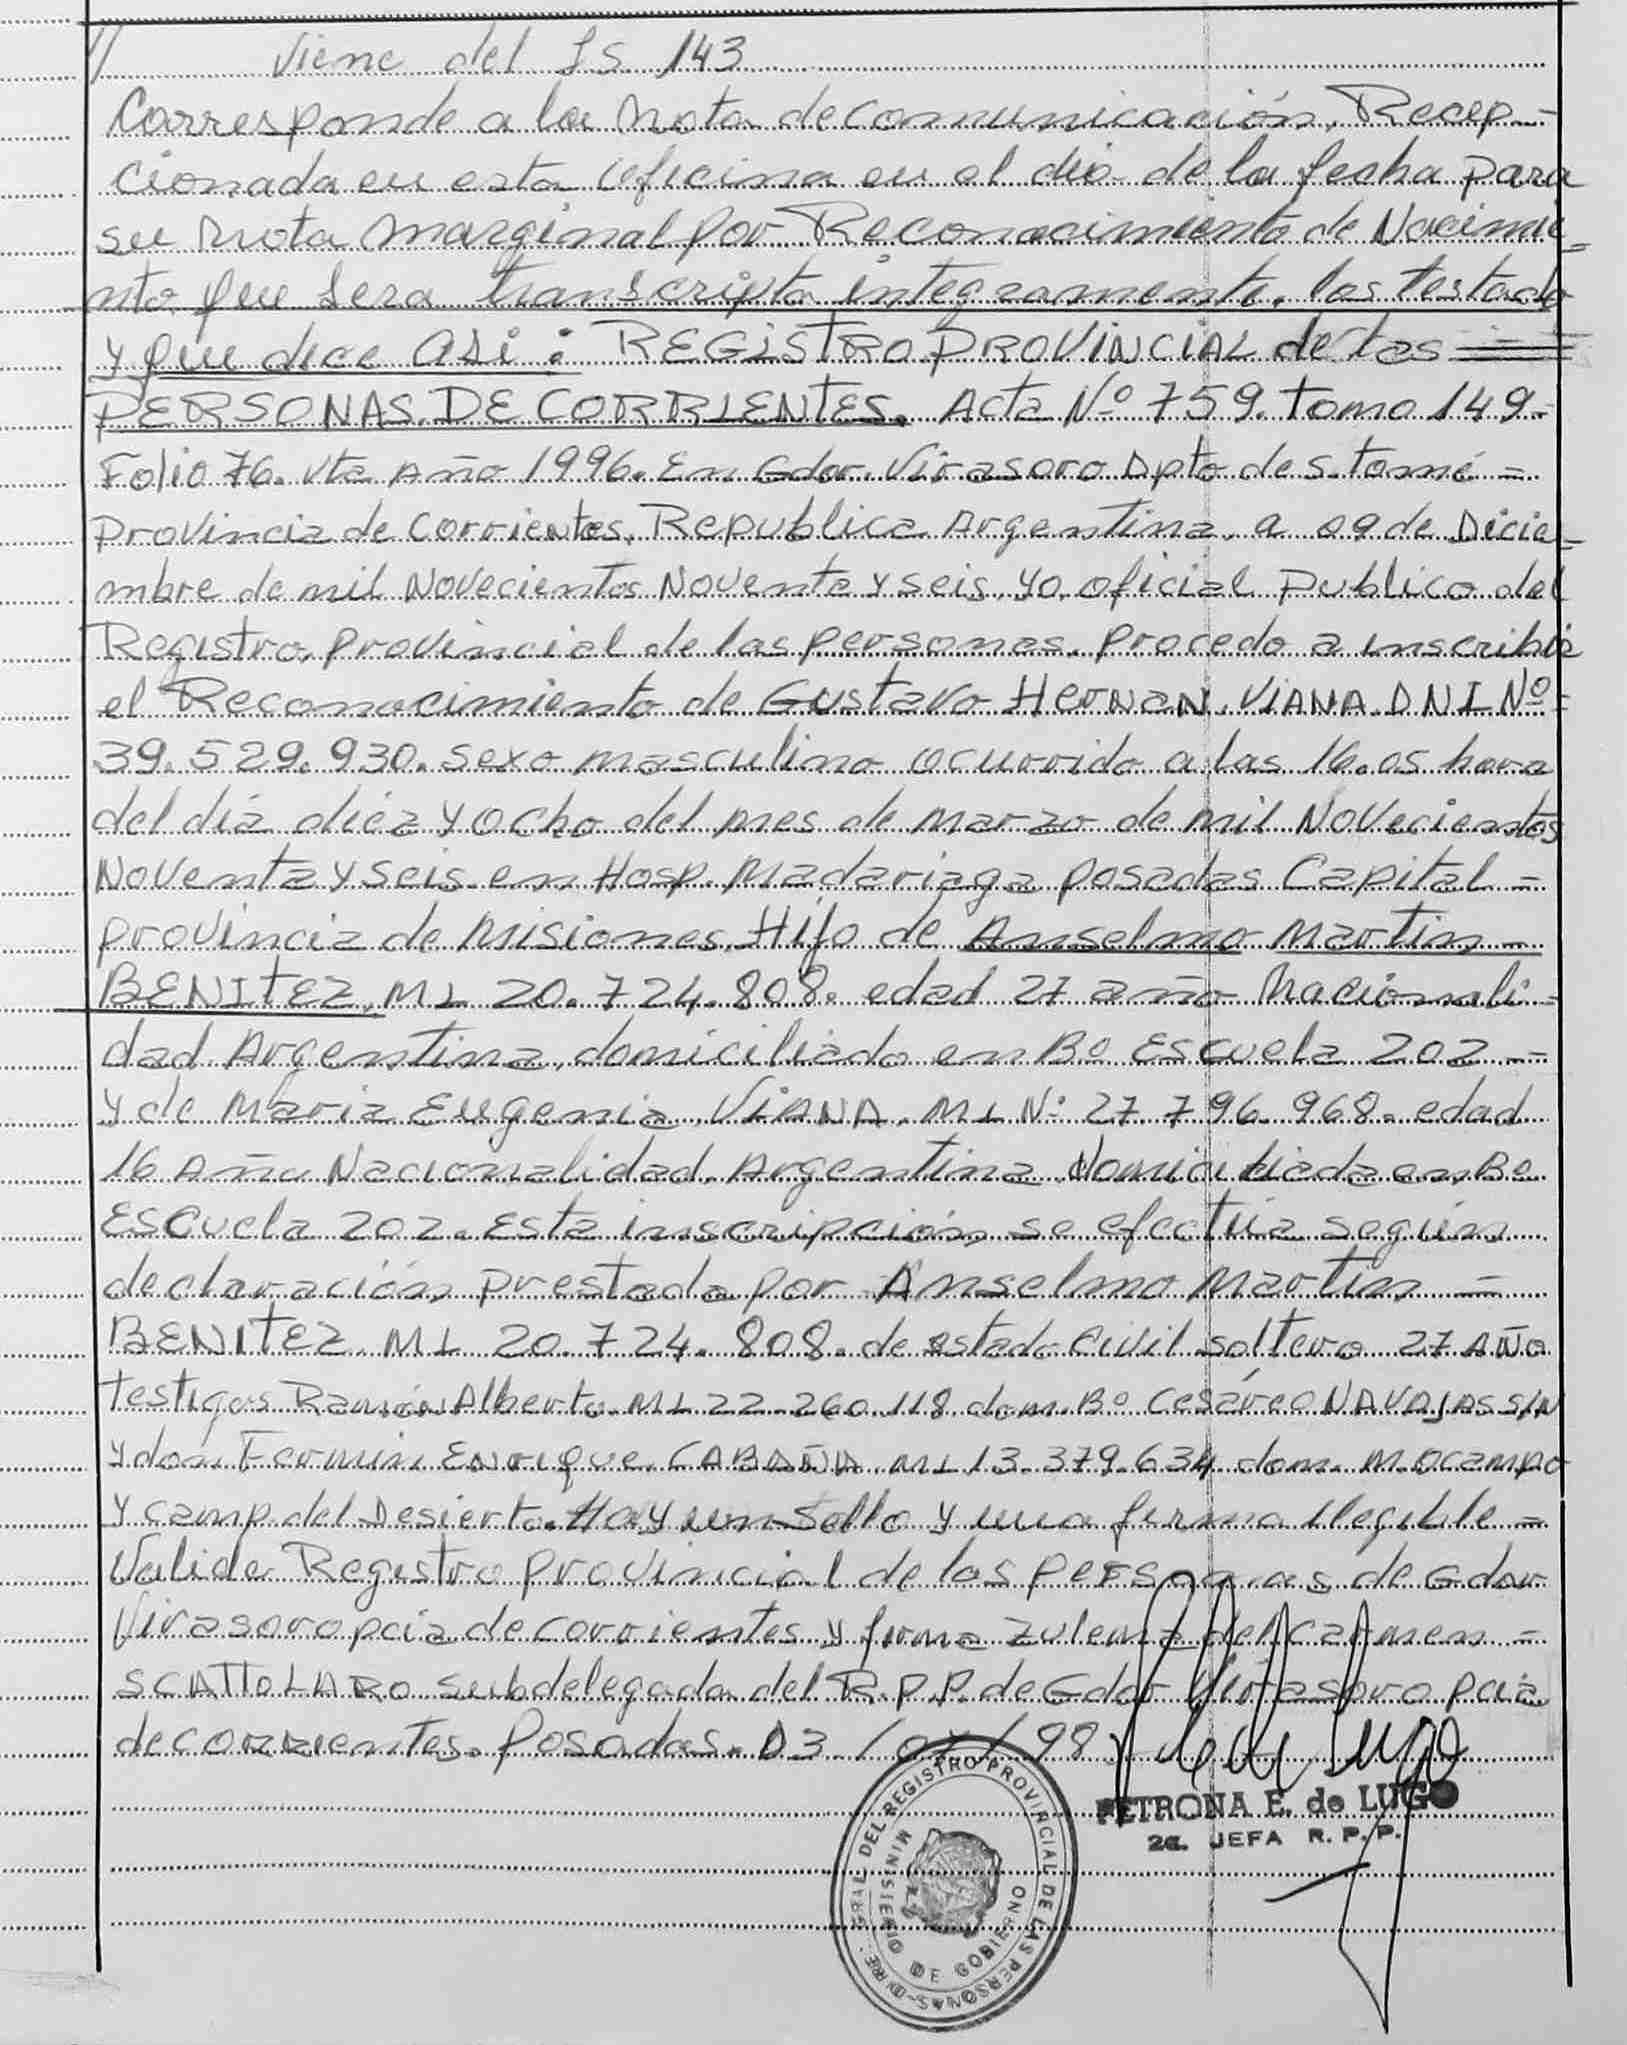 // Viene del fs 143
Corresponde a la Nota de comunicación, Recep-
cionada en esta oficina en el dia de la fecha para
su Nota marginal por Reconocimiento de Nacimie-
nto que sera transcripta integramente, los testado
y que dice asi: REGISTRO PROVINCIAL de las
PERSONAS DE CORRIENTES. Acta Nº 759. Tomo 149.-
Folio 76. vta Año 1996. En Gdor. Virasoro Dpto de s. tomé =
Provincia de Corrientes, Republica Argentina, a 09 de Dicie-
mbre de mil Novecientos Noventa y seis, yo, oficial Publico del
Registro, Provincial de las personas, procedo a inscribir
el Reconocimiento de Gustavo Hernan, VIANA DNI Nº =
39.529.930. sexo masculino ocurrido a las 16.05 hora
del día diéz y ocho del mes de marzo de mil Novecientos
Noventa y seis en Hosp. Madariaga Posadas Capital =
provincia de Misiones, Hijo de Anselmo Martin =
BENITEZ, MI 20.724.808. edad 27 año Nacionali-
dad Argentina, domiciliado en Bº Escuela 202 =
y de Maria Eugenia VIANA, MI Nº 27.796.968. edad
16 Año Nacionalidad Argentina domiciliada en Bº
Escuela 202. Esta inscripción, se efectúa según
declaración prestada por Anselmo Martin =
BENITEZ MI 20.724.808. de estado Civil soltero 27 AÑO
testigos Ramón Alberto MI 22.260.118 dom. Bº Cesáreo NAVAJAS S/N
y don Fermin Enrique CABAÑA MI 13.379.634 dom. M. Ocampo
y camp. del Desierto. Hay un Sello y una firma Ilegible =
Valide Registro Provincial de las Personas de Gdor
Virasoro pcia de corrientes y firma Zulema del Carmen =
SCATTOLARO Subdelegada del R.P.P. de Gdor Virasoro pcia
de corrientes. Posadas. 03/07/98.
PETRONA E. de LUGO
2a. JEFA R. P. P.
DEL REGISTRO PROVINCIAL DE LAS PERSONAS
MINISTERIO DE GOBIERNO